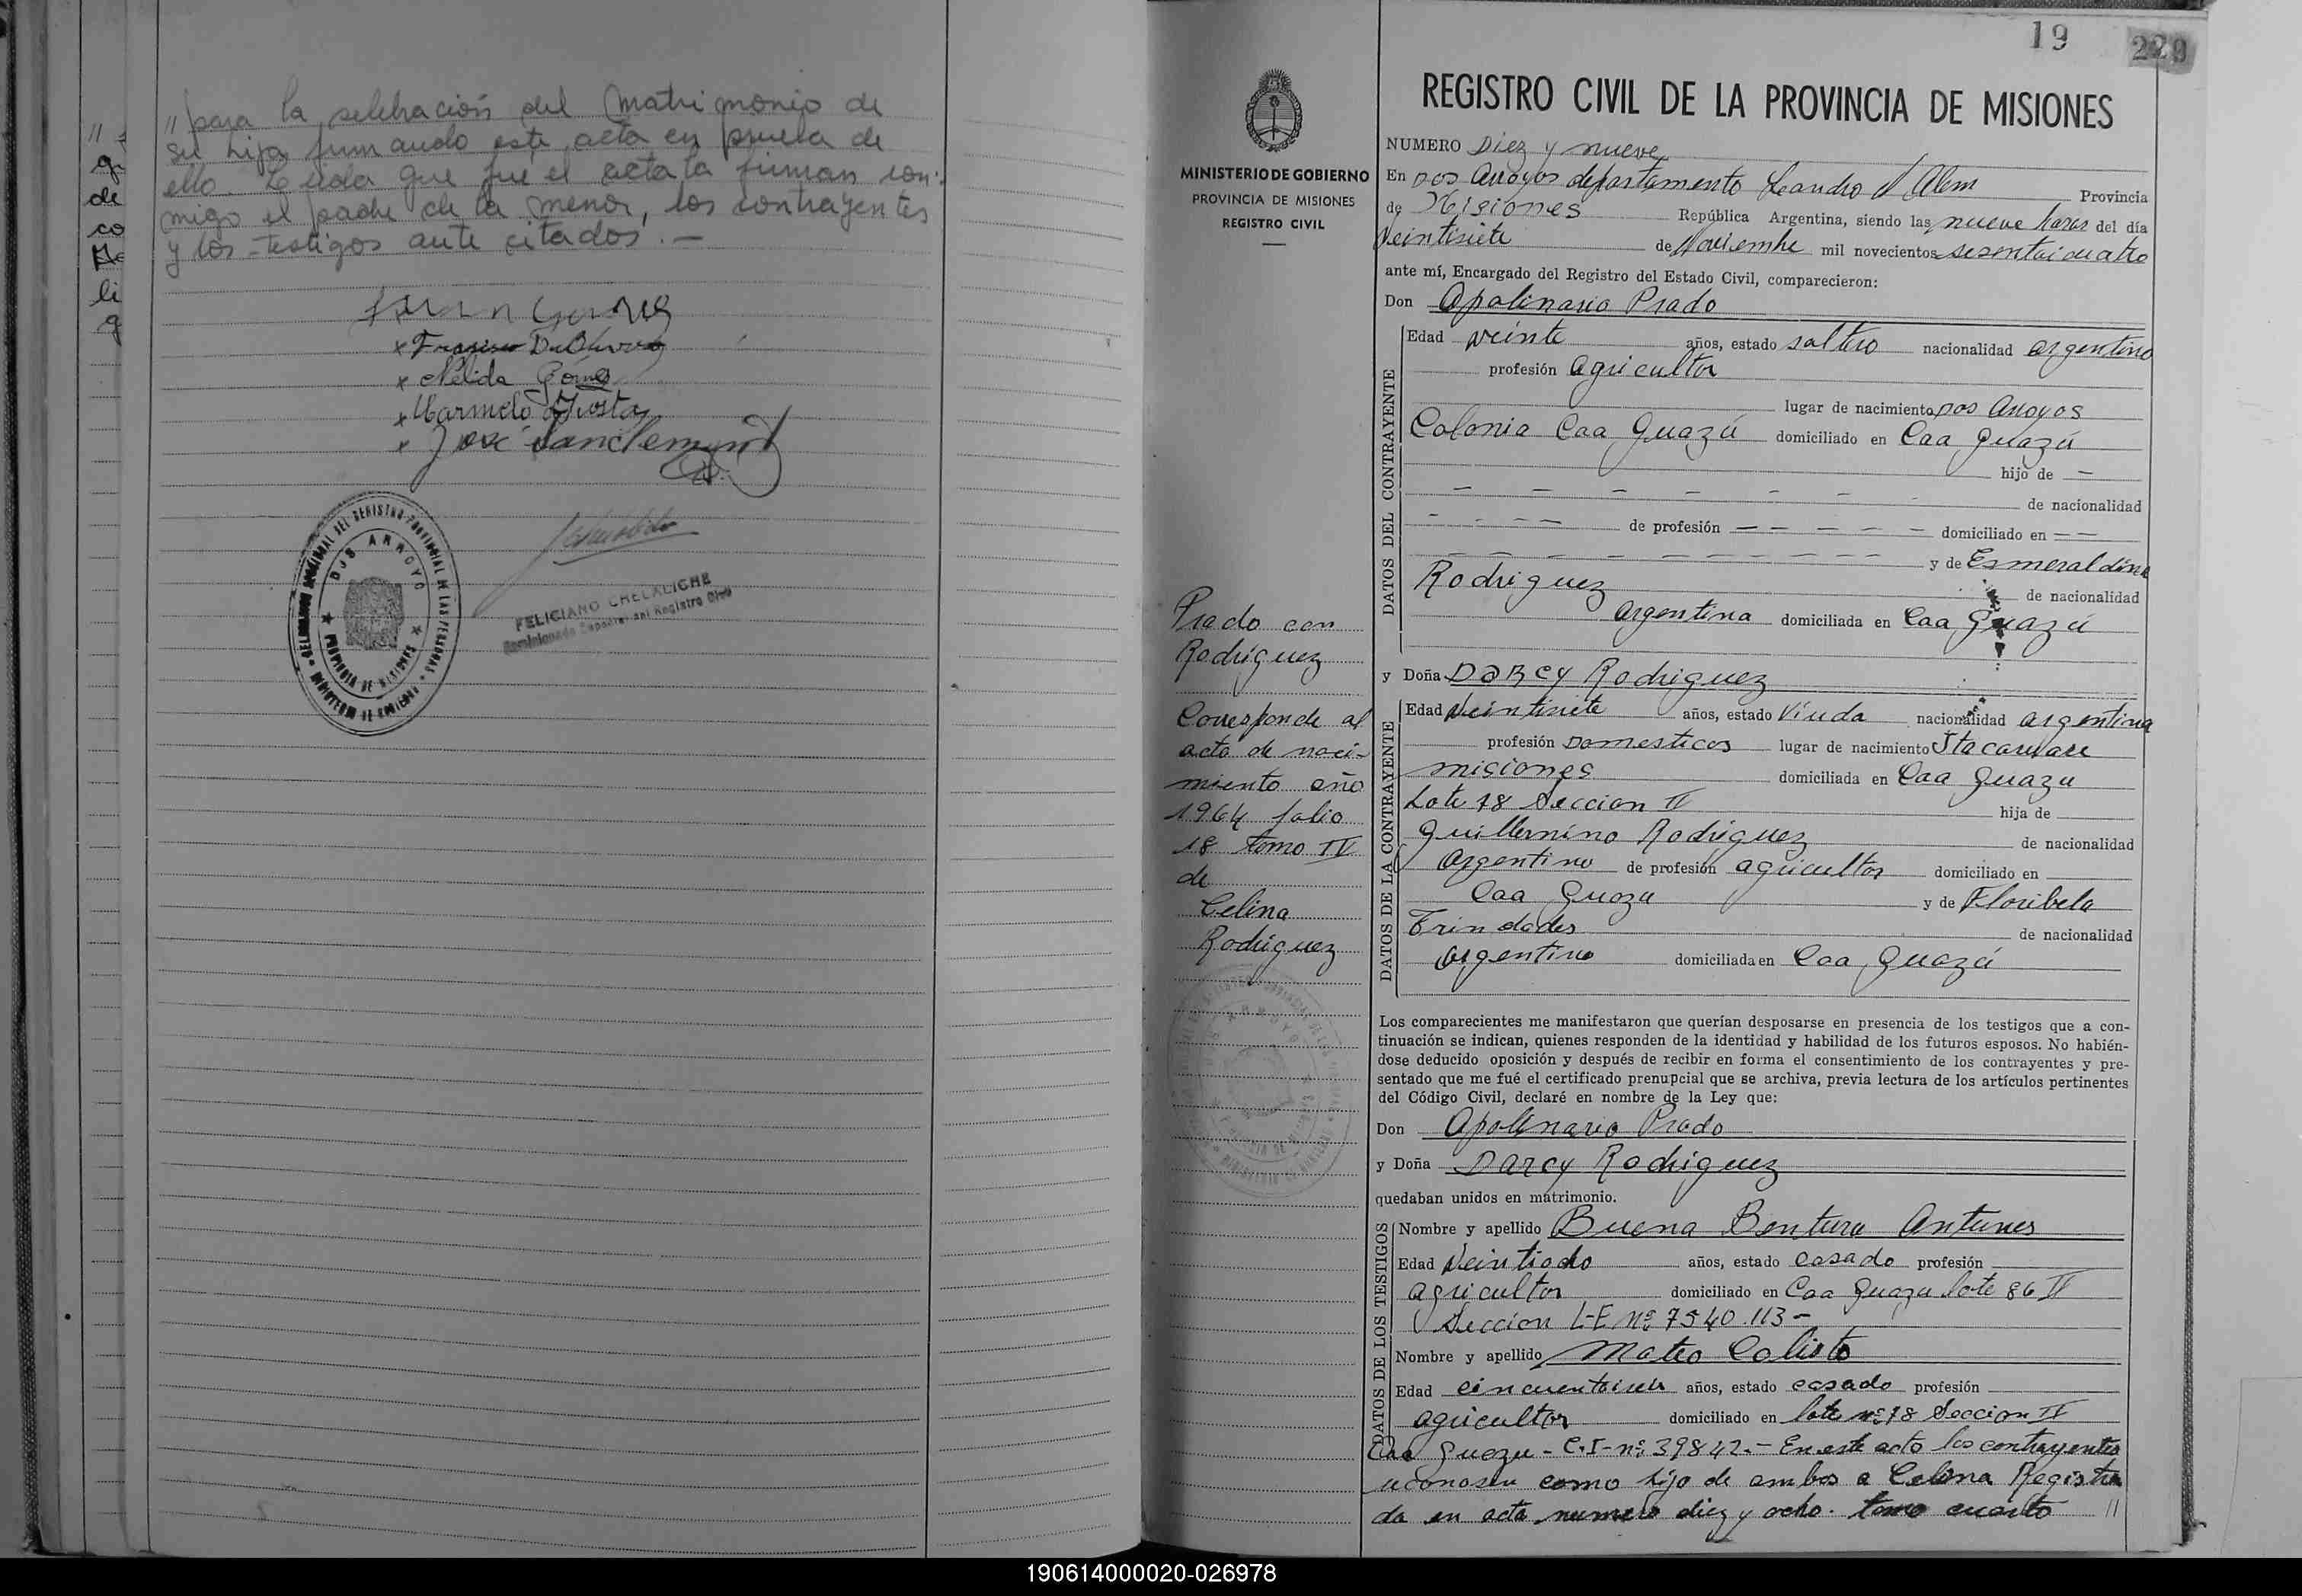 // para la selebración del Matrimonio de
su hija firmando este acta en prueba de
ello. Leida que fué el acta la firman con-
migo el padre de la menor, los contrayentes
y los testigos ante citados.—
x Nélida
x José
DOS ARROYO
PROVINCIA DE MISIONES
FELICIANO CHELALICHE
Registro Civil
//
de
co
li
19
229
REGISTRO CIVIL DE LA PROVINCIA DE MISIONES
MINISTERIO DE GOBIERNO
PROVINCIA DE MISIONES
REGISTRO CIVIL
NUMERO Diez y nueve
En Dos Arroyos departamento Leandro N Alem Provincia
de Misiones República Argentina, siendo las nueve horas del día
veintisiete de Noviembre mil novecientos sesentaicuatro
ante mí, Encargado del Registro del Estado Civil, comparecieron:
Don Apolinario Prado
DATOS DEL CONTRAYENTE
Edad veinte años, estado soltero nacionalidad argentino
profesión agricultor
lugar de nacimiento Dos Arroyos
Colonia Caa Guazú domiciliado en Caa Guazú
hijo de —
— — — — — — — de nacionalidad
— — — — de profesión — — — — — domiciliado en — —
— — — — — — — — — y de Esmeraldina
Rodriguez de nacionalidad
argentina domiciliada en Caa Guazú
y Doña Darcy Rodriguez
DATOS DE LA CONTRAYENTE
Edad Veintisiete años, estado Viuda nacionalidad argentina
profesión Domesticos lugar de nacimiento Itacaruare
misiones domiciliada en Caa Guazu
Lote 78 Seccion II hija de
Guillermino Rodriguez de nacionalidad
Argentino de profesión agricultor domiciliado en
Caa Guazu y de Floribela
Trindades de nacionalidad
argentino domiciliada en Caa Guazú
Prado con
Rodriguez
Corresponde al
acta de naci-
miento año
1964 folio
18 tomo IV
de
Celina
Rodriguez
Los comparecientes me manifestaron que querían desposarse en presencia de los testigos que a con-
tinuación se indican, quienes responden de la identidad y habilidad de los futuros esposos. No habién-
dose deducido oposición y después de recibir en forma el consentimiento de los contrayentes y pre-
sentado que me fué el certificado prenupcial que se archiva, previa lectura de los artículos pertinentes
del Código Civil, declaré en nombre de la Ley que:
Don Apolinario Prado
y Doña Darcy Rodriguez
quedaban unidos en matrimonio.
DATOS DE LOS TESTIGOS
Nombre y apellido Buena Bentura Antunes
Edad Veintiocho años, estado casado profesión
agricultor domiciliado en Caa Guazu lote 86 II
Seccion L-E Nº 7540.113-
Nombre y apellido Mateo Calisto
Edad cincuentaiseis años, estado casado profesión
agricultor domiciliado en lote nº 78 Seccion II
Caa Guazu - C.I - nº 39842.- En este acto los contrayentes
reconosen como hijo de ambos a Celina Registra
da en acta numero diez y ocho. tomo cuarto //
190614000020-026978